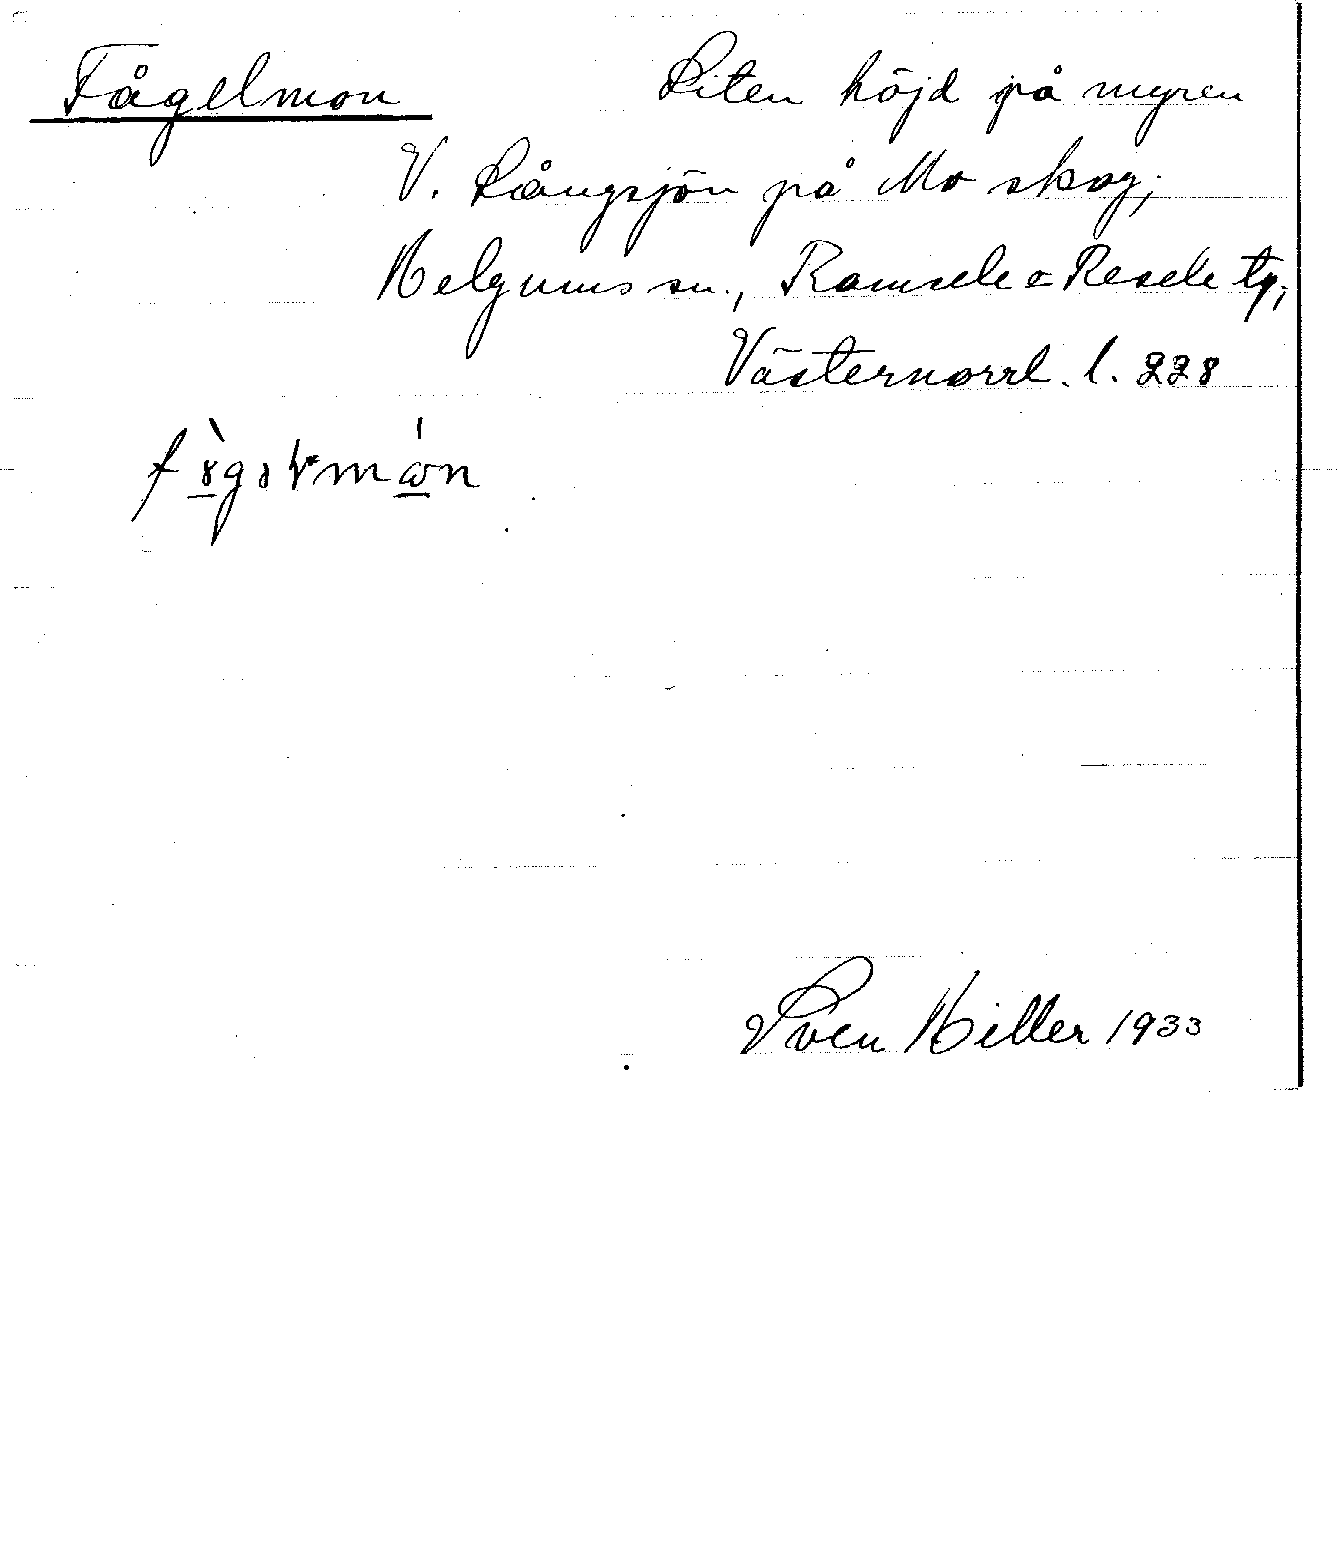 Fågelmon Liten höjd på myren
V. Långsjön på Mo skog;
Helgums sn., Ramsele o Resele tg;
Västernorrl. l. 228
Sven Hiller 1933